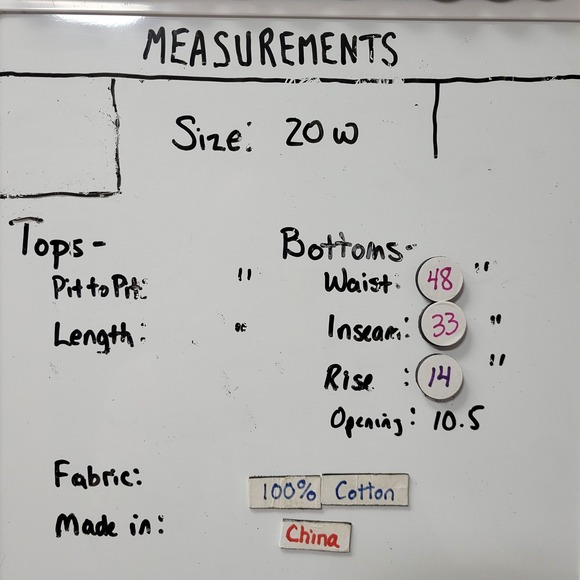 MEASUREMENTS
Size: 20w
Tops-
Pit to Pit: "
Length: "
Bottoms-
Waist: 48 "
Inseam: 33 "
Rise : 14 "
Opening: 10.5
Fabric: 100% Cotton
Made in: China